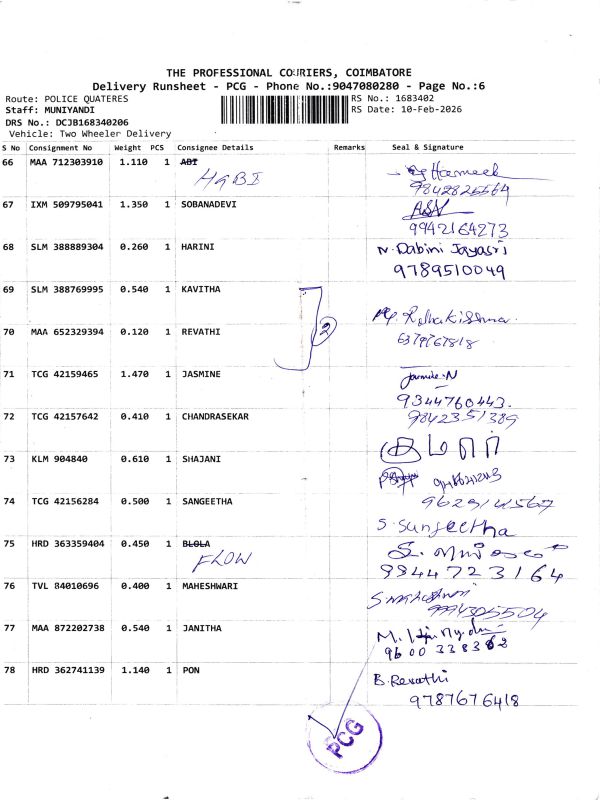 THE PROFESSIONAL COURIERS, COIMBATORE
Delivery Runsheet - PCG - Phone No.:9047080280 - Page No.:6
Route: POLICE QUATERES
RS No.: 1683402
Staff: MUNIYANDI
RS Date: 10-Feb-2026
DRS No.: DCJB168340206
Vehicle: Two Wheeler Delivery
S No Consignment No Weight PCS Consignee Details Remarks Seal & Signature
66 MAA 712303910 1.110 1 ABI
HABI
9842826564
67 IXM 509795041 1.350 1 SOBANADEVI
9942164273
68 SLM 388889304 0.260 1 HARINI N. Dabini Jayasri
9789510049
69 SLM 388769995 0.540 1 KAVITHA
2
70 MAA 652329394 0.120 1 REVATHI
6379767818
71 TCG 42159465 1.470 1 JASMINE Jasmile.N
9344760443.
72 TCG 42157642 0.410 1 CHANDRASEKAR 9842351389
குமார்
73 KLM 904840 0.610 1 SHAJANI
74 TCG 42156284 0.500 1 SANGEETHA 9629141567
S. Sungeetha
75 HRD 363359404 0.450 1 BLOLA
FLOW
9944723164
76 TVL 84010696 0.400 1 MAHESHWARI
9994305504
77 MAA 872202738 0.540 1 JANITHA
9600338362
78 HRD 362741139 1.140 1 PON B. Revathi
9787676418
PCG